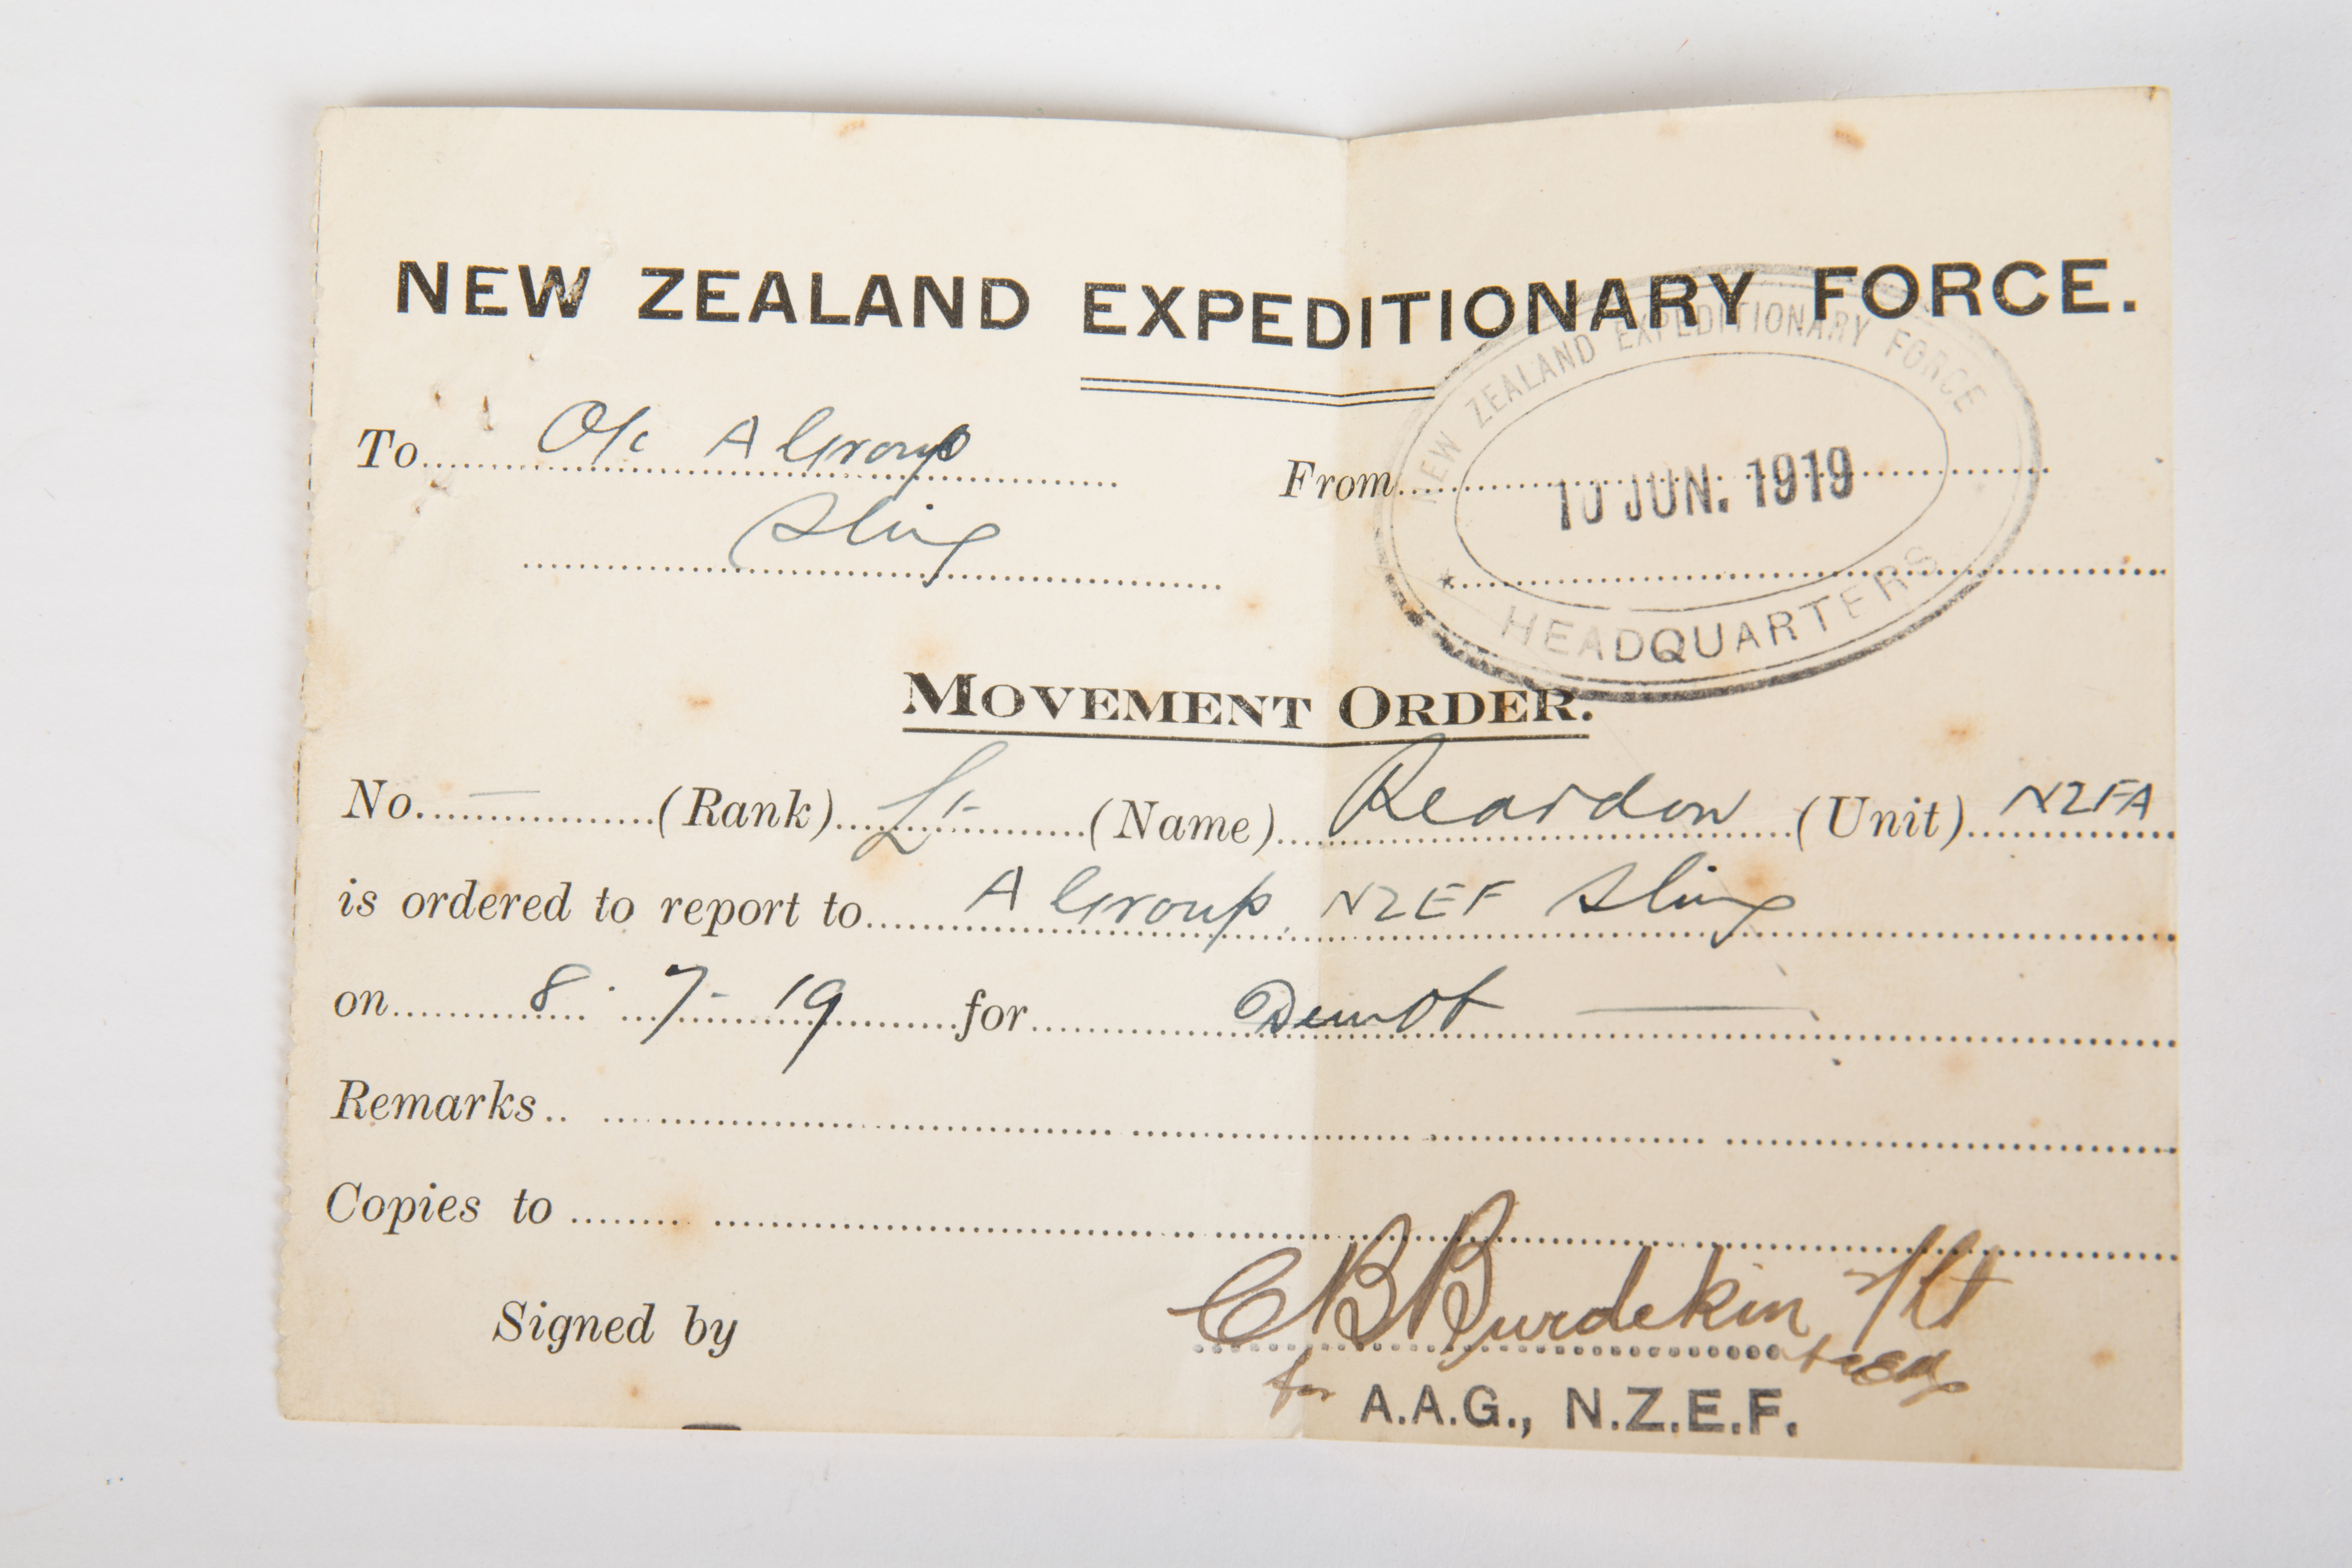 NEW ZEALAND EXPEDITIONARY FORCE.
To O/c A Group From
Sling
NEW ZEALAND EXPEDITIONARY FORCE
10 JUN. 1919
HEADQUARTERS
MOVEMENT ORDER.
No. — (Rank) Lt (Name) Reardon (Unit) NZFA
is ordered to report to A Group NZEF Sling
on 8.7.19 for —
Remarks
Copies to
Signed by CB Burdekin
for A.A.G., N.Z.E.F.